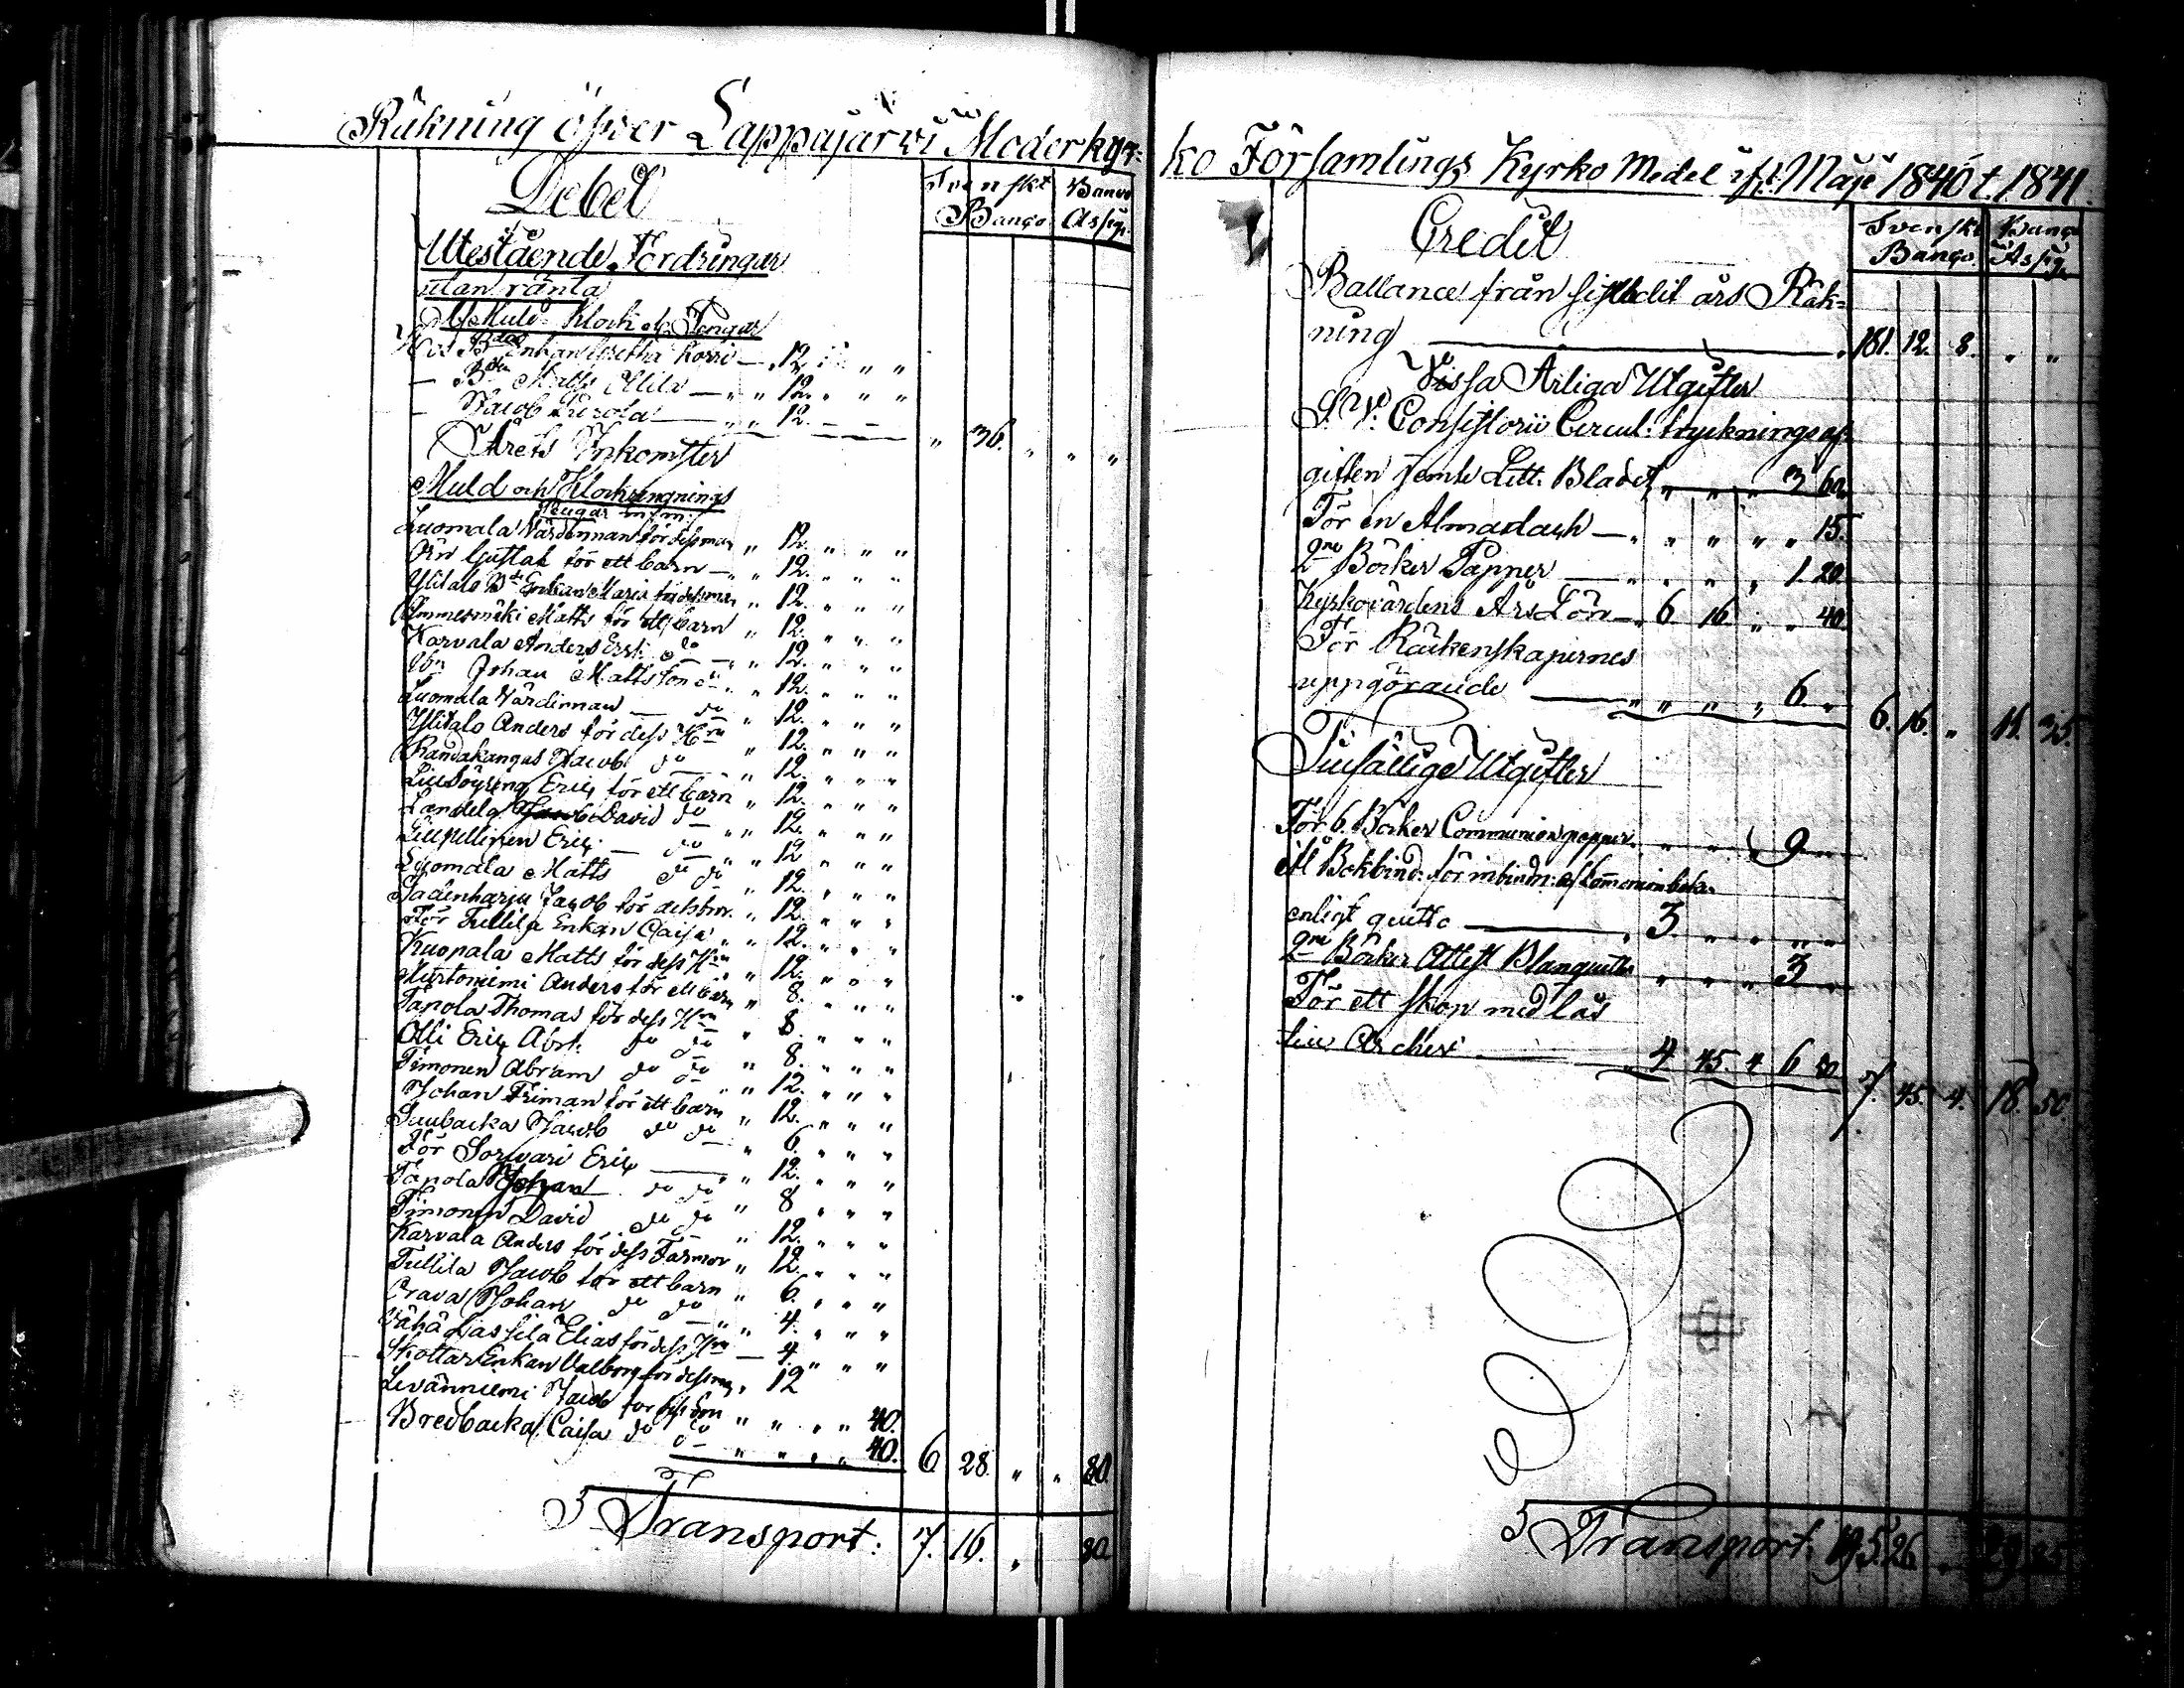 Räkning öfver Lappajärvi Moderkyr-
Debet
Svenskt Banco
Banco Assign.
Utestående Fordringar
utan ränta
Af Muld- Klock & Pengar
Hos Bden Enkan Gretha Korri — 12. " "
— Bden Matts Ylilä — " " 12. " " "
— Jacob Turola — " " 12. — —
" 36. " " "
Årets Inkomster
Muld och Klockringnings
Pengar m: m:
Luomala Värdinnan för dess man " 12. " " "
Örn Gustaf för ett barn — " " 12. " " "
Ylitalo Bde Enkan Maria för dess man " 12. " " "
Ammesmäki Matts för ett barn " 12. " " "
Karvala Anders Ersk. do — " " 12. " " "
Johan Mattsson do " " 12. " " "
Luomala Värdinnan — do " 12. " " "
Ylitalo Anders för dess Hru " 12. " " "
Randakangas Jacob do — " 12. " " "
Eric för ett barn " 12. " " "
David do " " 12. " " "
Eric — do " " 12 " " "
Luomala Matts do do " 12. " " "
Sadenharju Jacob för dess " 12. " " "
För Tullila Enkan Caisa " " 12. " " "
Kuopala Matts för dess Hru " " 12. " " "
Hirtoniemi Anders för ett barn " 8. " " "
Tanola Thomas för dess Hru " 8. " " "
Olli Eric Abrh. do do " 8. " " "
Timonen Abram do do " " 12. " " "
Johan Friman för ett barn " 12. " " "
Saubacka Jacob do do " 6. " " "
För Sorvari Eric — " 12. " " "
Tanola Johan do do " 8 " " "
Timonen David do do " 12. " " "
Karvala Anders för dess Farmor " 12. " " "
Tullila Jacob för ett barn " 6. " " "
Crava Johan do do " " 4. " " "
Elias för dess Hru — 4 " " "
Skottar Enkan Valborg för dess man " 12
Levänniemi Jacob for dess " " " " 40.
Bredbacka Caisa do do " " " " 40.
6 28. " " 80.
Transport: 7. 16. " 80
ko Församlings Kyrko Medel ifr. Maji 1840 t. 1841.
Credit
Svenskt Banco.
Banco Assig.
Ballance från sistledit års Räk-
ning — 181. 12. 8. " "
Vissa Årliga Utgifter
S. V. Consistorii Circul: tryckningsaf-
giften jemte Litt. Bladet " " " 3 60
För en Almanach — " " " " " 15.
2ne Böcker Papper — " " " " 1. 20.
Kyrkovärdens Års Lön — " 6 16 " " 40.
För Räkenskapernes
uppgörande — " " " " 6 "
6. 16. " 11. 35.
Tillfällige Utgifter
För 6. Böcker Communion papper " " " 9 —
åt Bokbind. för inbindn: af
enligt quitto — " 3. " " " "
2ne Böcker Attest Blanquetter " " " 3 "
För ett skåp med lås
till Archivi — " 4 45. 4 6 50
7. 45. 4. 18. 50
Transport. 195. 26 " 29. 85.